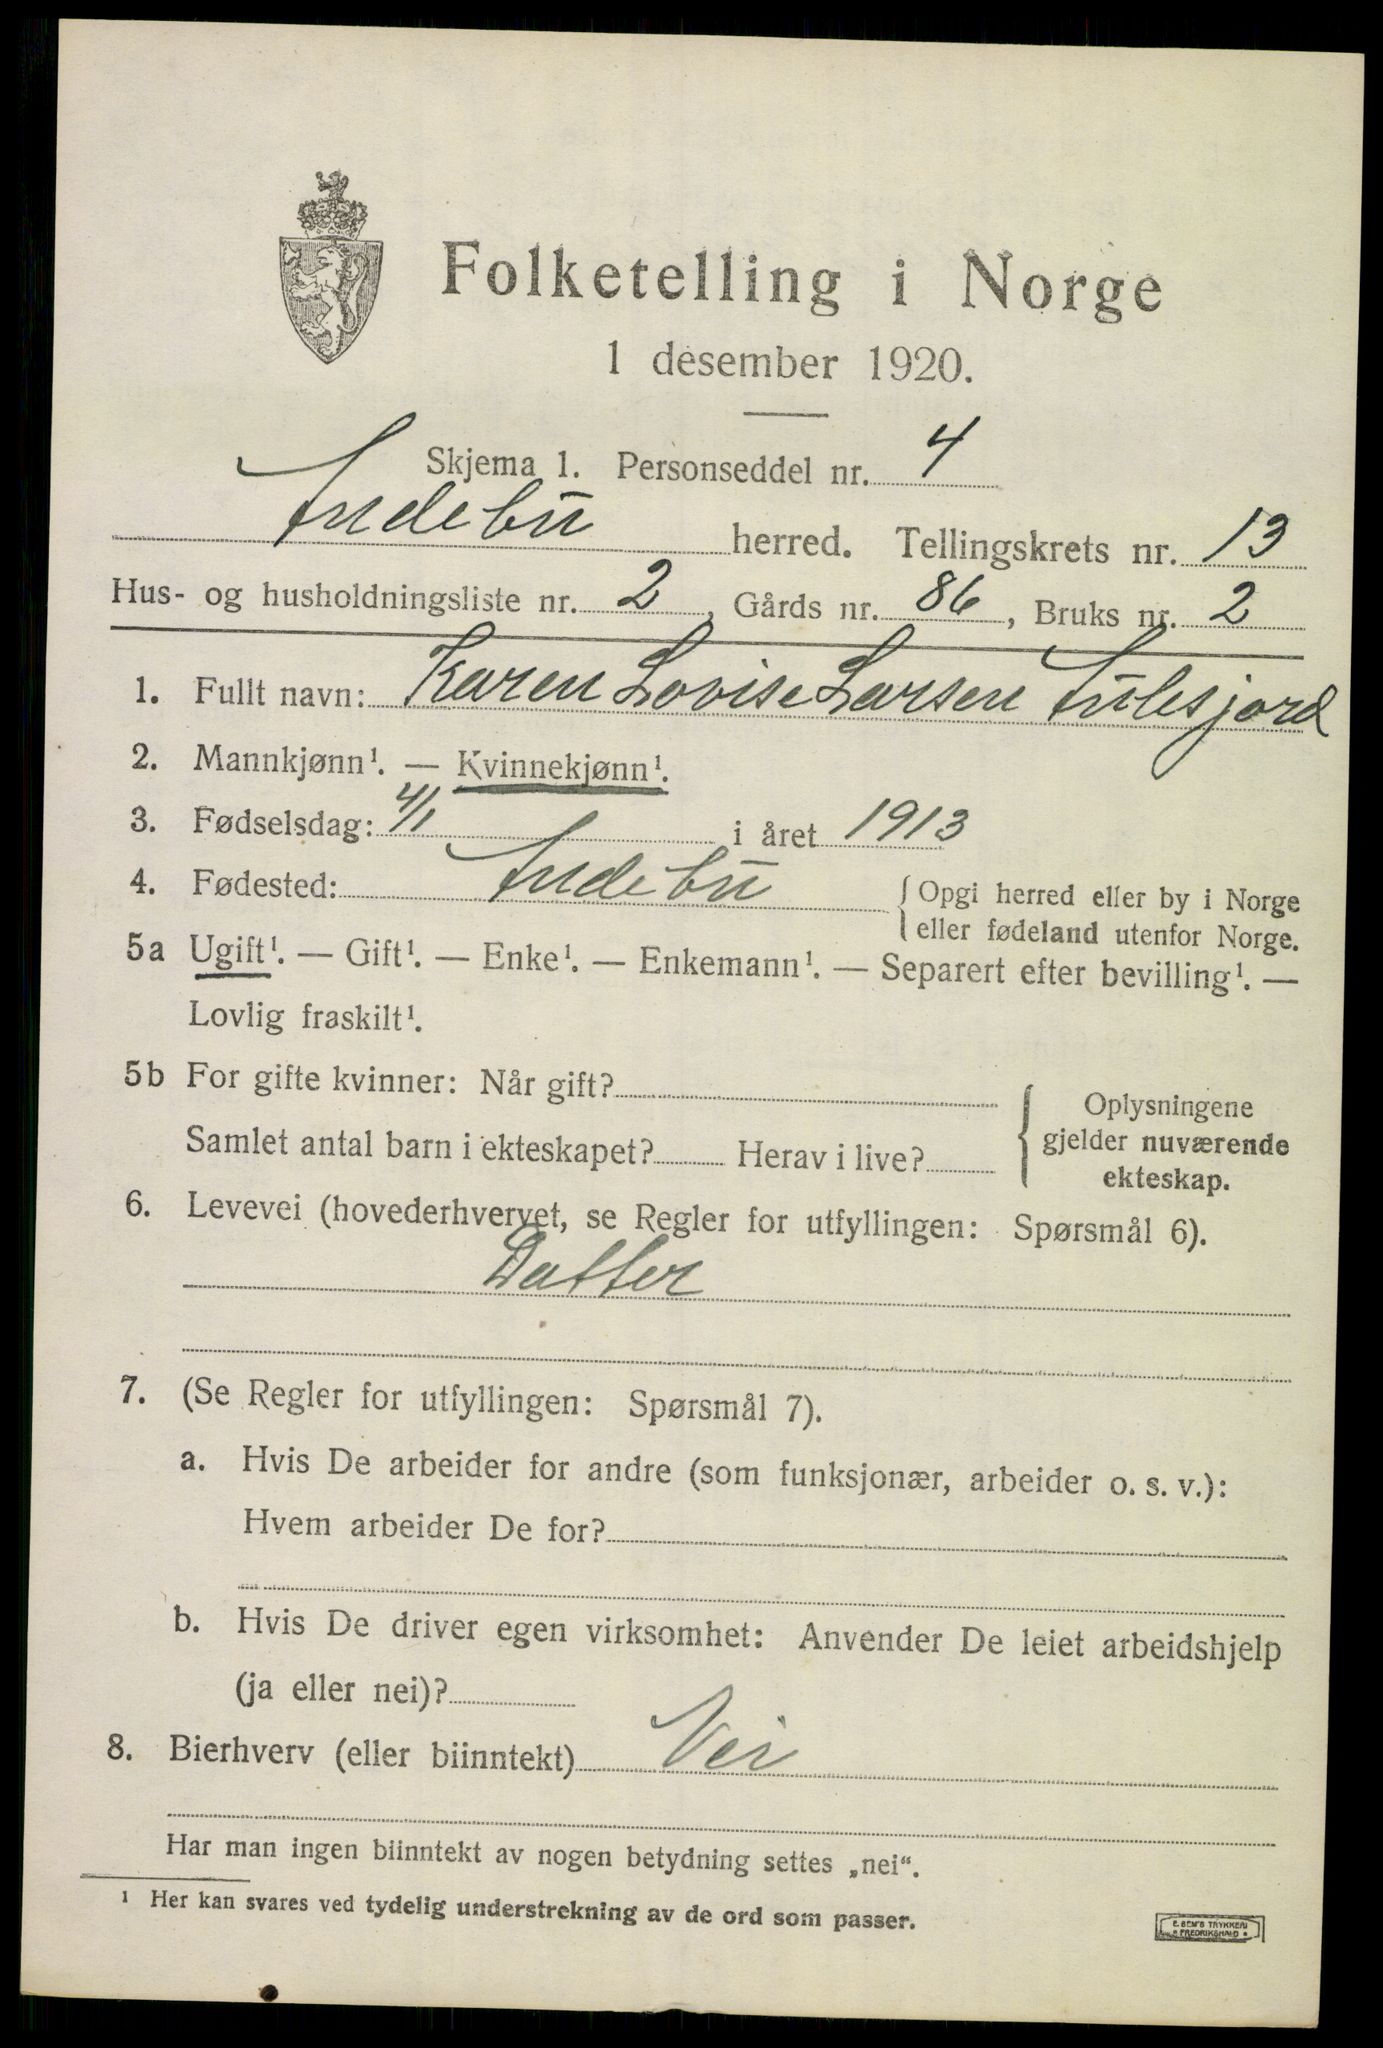 Folketelling i Norge
1 desember 1920.
Skjema 1. Personseddel nr. 4
Andebu herred. Tellingskrets nr. 13
Hus- og husholdningsliste nr. 2, Gårds nr. 86, Bruks nr. 2
1. Fullt navn: Karen Lovise Larsen
2. Mannkjønn¹. — Kvinnekjønn¹.
3. Fødselsdag: 4/1 i året 1913
4. Fødested: Andebu { Opgi herred eller by i Norge
eller fødeland utenfor Norge.
5a Ugift¹. — Gift¹. — Enke¹. — Enkemann¹. — Separert efter bevilling¹. —
Lovlig fraskilt¹.
5b For gifte kvinner: Når gift?
Samlet antal barn i ekteskapet? Herav i live?
{ Oplysningene
gjelder nuværende
ekteskap.
6. Levevei (hovederhvervet, se Regler for utfyllingen: Spørsmål 6).
Datter
7. (Se Regler for utfyllingen: Spørsmål 7).
a. Hvis De arbeider for andre (som funksjonær, arbeider o. s. v.):
Hvem arbeider De for?
b. Hvis De driver egen virksomhet: Anvender De leiet arbeidshjelp
(ja eller nei)?
8. Bierhverv (eller biinntekt) Nei
Har man ingen biinntekt av nogen betydning settes „nei“.
¹ Her kan svares ved tydelig understrekning av de ord som passer.
E. SEM'S TRYKKERI
• FREDRIKSHALD •